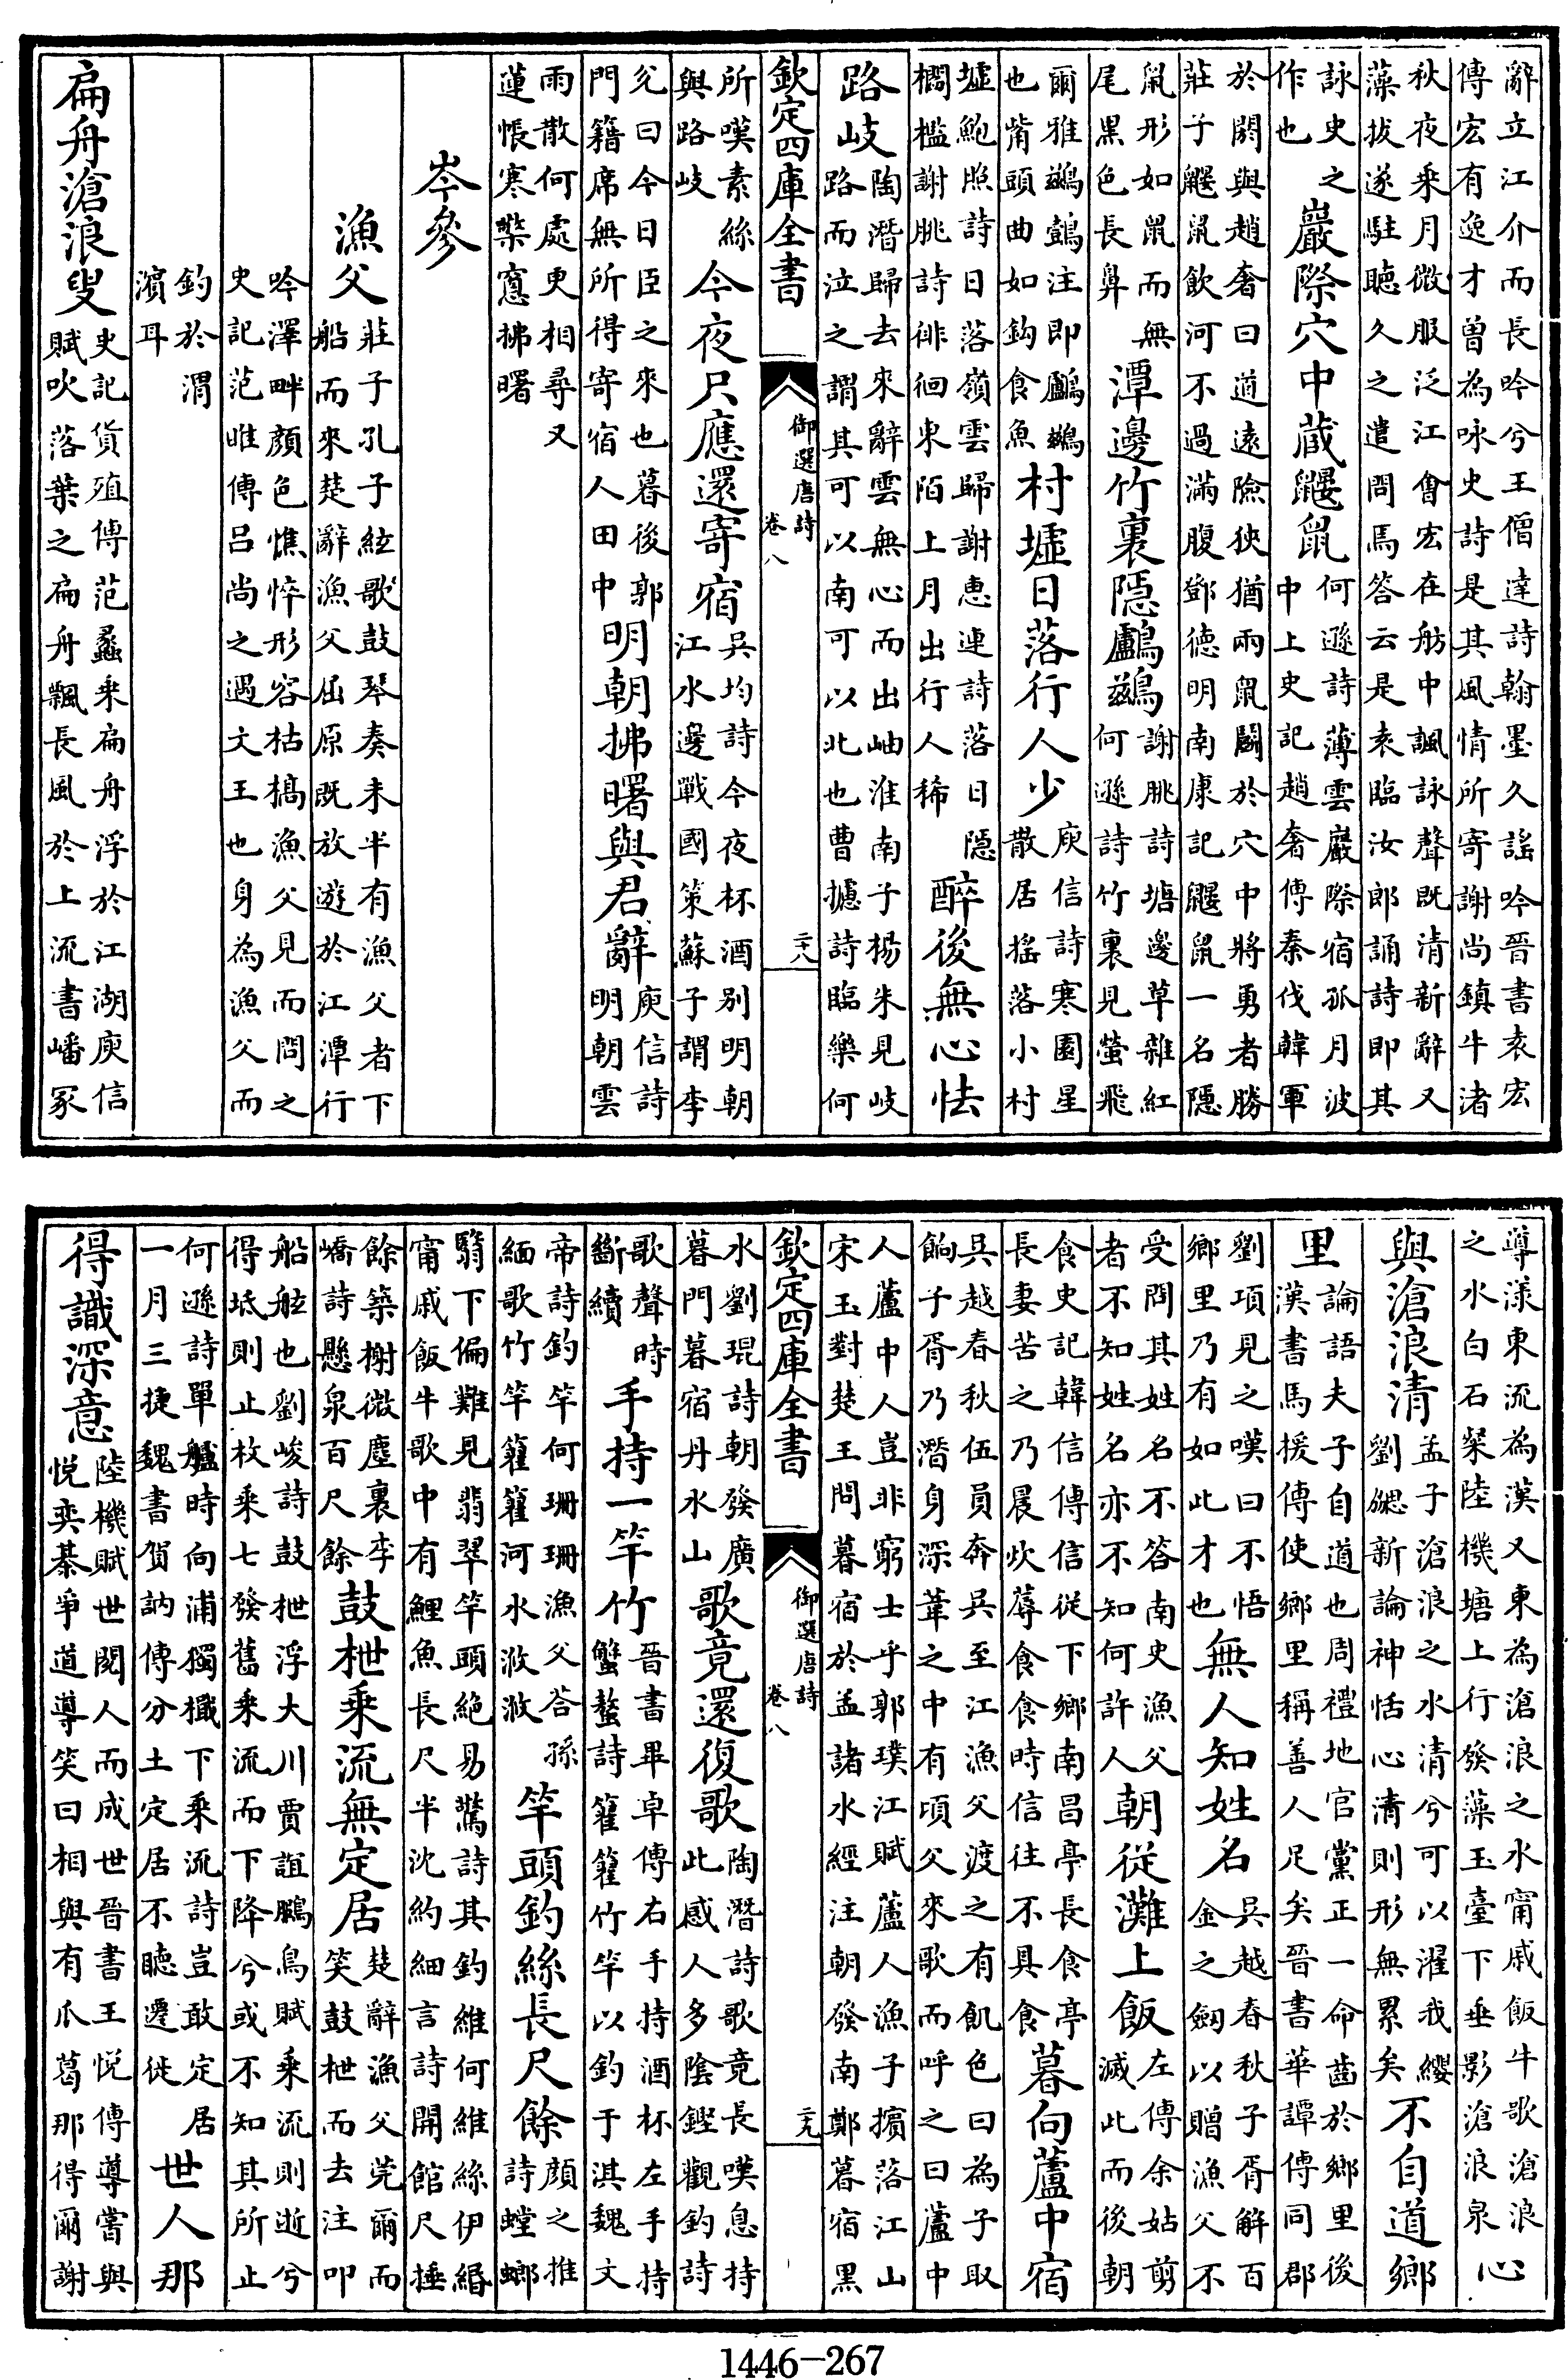 辭立江介而長吟兮王僧達詩翰墨久謠吟晉書袁宏
傳宏有逸才曾為咏史詩是其風情所寄謝尚鎮牛渚
秋夜乗月微服泛江㑹宏在舫中諷詠聲既清新辭又
藻拔遂駐聽久之遣問馬答云是袁臨汝郎誦詩即其
詠史之作也 巖際穴中蔵鼴鼠 何遜詩薄雲巖際宿孤月波中上史記趙奢傳秦伐韓軍
於閼與趙奢曰道遠險狹猶兩鼠鬭於穴中將勇者勝
莊子鼴鼠飲河不過滿腹鄧徳明南康記鼴鼠一名隱
鼠形如鼠而無尾黒色長鼻 潭邊竹裏隱鸕鷀 謝朓詩塘邊草雜紅何遜詩竹裏見螢飛
爾雅鷀鷧注即鸕鷀也觜頭曲如鈎食魚 村墟日落行人少 庾信詩寒園星散居揺落小村
墟鮑照詩日落嶺雲歸謝惠連詩落日隱櫩楹謝朓詩徘徊東陌上月出行人稀 醉後無心怯
路岐 陶潛歸去來辭雲無心而出岫淮南子楊朱見岐路而泣之謂其可以南可以北也曹攄詩臨樂何
欽定四庫全書 御選唐詩 卷八 二十八
所嘆素絲與路岐 今夜只應還寄宿 吳均詩今夜杯酒別明朝江水邊戰國策蘇子謂李
兊曰今日臣之來也暮後郭門籍席無所得寄宿人田中 明朝拂曙與君辭 庾信詩明朝雲
雨散何處更相尋又蓮帳寒檠窻拂曙
岑參
漁父 莊子孔子絃歌鼓琴奏未半有漁父者下船而來楚辭漁父屈原既放遊於江潭行
吟澤畔顔色憔悴形容枯槁漁父見而問之史記范睢傳吕尚之遇文王也身為漁父而
釣於渭濱耳
扁舟滄浪叟 史記貨殖傳范蠡乗扁舟浮於江湖庾信賦吹落葉之扁舟飄長風於上流書嶓冢
導漾東流為漢又東為滄浪之水甯戚飯牛歌滄浪之水白石粲陸機塘上行發藻玉臺下垂影滄浪泉 心
與滄浪清 孟子滄浪之水清兮可以濯我纓劉勰新論神恬心清則形無累矣 不自道鄉
里 論語夫子自道也周禮地官黨正一命齒於鄉里後漢書馬援傳使鄉里稱善人足矣晉書華譚傳同郡
劉項見之嘆曰不悟鄉里乃有如此才也 無人知姓名 吳越春秋子胥解百金之劒以贈漁父不
受問其姓名不答南史漁父者不知姓名亦不知何許人 朝從灘上飯 左傳余姑剪滅此而後朝
食史記韓信傳信從下鄉南昌亭長食亭長妻苦之乃晨炊蓐食食時信往不具食 暮向蘆中宿
吳越春秋伍員奔吳至江漁父渡之有飢色曰為子取餉子胥乃潛身深葦之中有頃父來歌而呼之曰蘆中
人蘆中人豈非窮士乎郭璞江賦蘆人漁子擯落江山宋玉對楚王問暮宿於孟諸水經注朝發南鄭暮宿黒
欽定四庫全書 御選唐詩 卷八 二十九
水劉琨詩朝發廣暮門暮宿丹水山 歌竟還復歌 陶潛詩歌竟長嘆息持此感人多陰鏗觀釣詩
歌聲時斷續 手持一竿竹 晉書畢卓傳右手持酒杯左手持蟹螯詩籊籊竹竿以釣于淇魏文
帝詩釣竿何珊珊漁父答孫緬歌竹竿籊籊河水浟浟 竿頭釣絲長尺餘 顔之推詩螳螂
翳下偏難見翡翠竿頭絶易驚詩其釣維何維絲伊緡甯戚飯牛歌中有鯉魚長尺半沈約細言詩開館尺捶
餘築榭微塵裏李嶠詩懸泉百尺餘 鼓枻乗流無定居 楚辭漁父莞爾而笑鼓枻而去注叩
船舷也劉峻詩鼓枻浮大川賈誼鵩鳥賦乗流則逝兮得坻則止枚乗七發舊乗流而下降兮或不知其所止
何遜詩單艫時向浦獨檝下乗流詩豈敢定居一月三捷魏書賀訥傳分土定居不聽遷徙 世人那
得識深意 陸機賦世閱人而成世晉書王悅傳導嘗與悅奕棊爭道導笑曰相與有瓜葛那得爾謝
1446-267